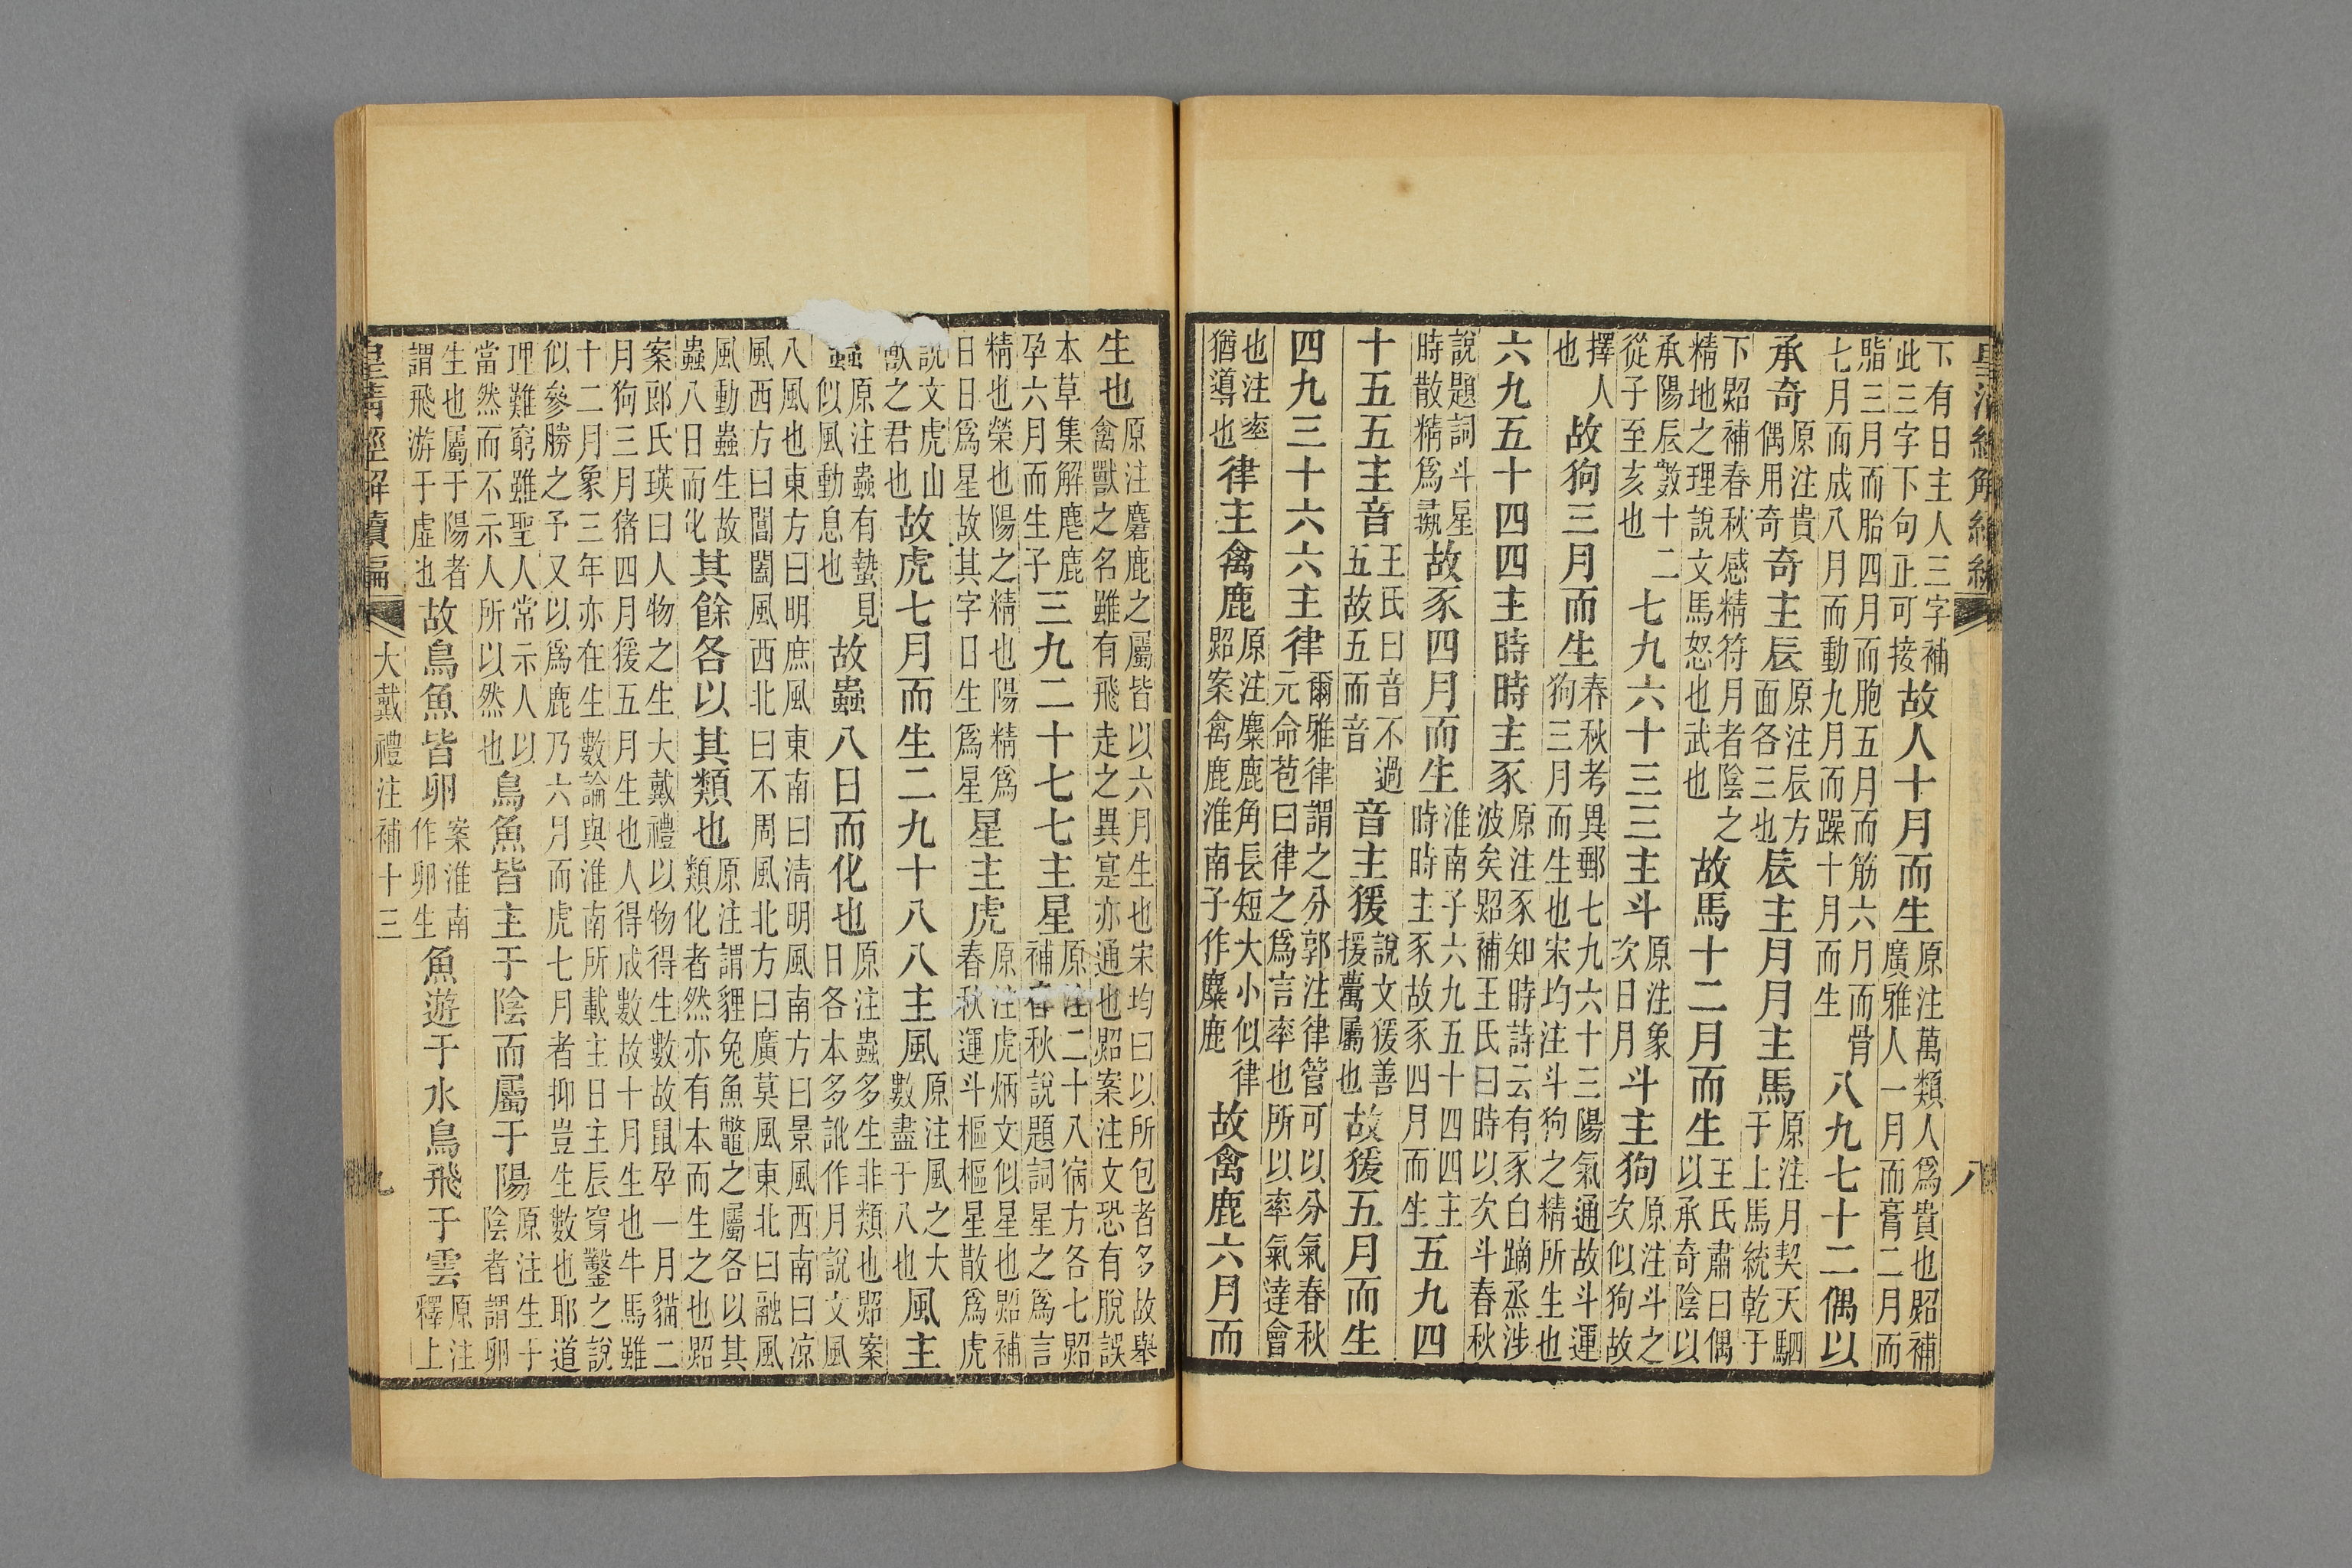 皇清經解續編 八
下有日主人三字補
此三字下句正可接
故人十月而生
原注萬類人爲貴也昭補
廣雅人一月而膏二月而
脂三月而胎四月而胞五月而筋六月而骨
七月而成八月而動九月而躁十月而生
八九七十二偶以
承奇
原注貴
偶用奇
奇主辰
原注辰方
面各三也
辰主月月主馬
原注月契天駟
于上馬統乾于
下昭補春秋感精符月者陰之
精地之理說文馬怒也武也
故馬十二月而生
王氏肅曰偶
以承奇陰以
承陽辰數十
從子至亥也
二七九六十三三主斗
原注象
次日月
斗主狗
原注斗之
次似狗故
擇人
也
故狗三月而生
春秋考異郵七九六十三陽氣通故斗運
狗三月而生也宋均注斗狗之精所生也
六九五十四四主時時主豕
原注豕知時詩云有豕白蹢烝涉
波矣昭補王氏曰時以次斗春秋
說題詞斗星
時散精爲彘
故豕四月而生
淮南子六九五十四四主
時時主豕故豕四月而生
五九四
十五五主音
王氏曰音不過
五故五而音
音主猨
說文猨善
援屬也
故猨五月而生
四九三十六六主律
爾雅律謂之分郭注律管可以分氣春秋
元命苞曰律之爲言率也所以率氣達會
也注率
猶導也
律主禽鹿
原注麋鹿角長短大小似律
昭案禽鹿淮南子作麋鹿
故禽鹿六月而
生也
原注麏鹿之屬皆以六月生也宋均曰以所包者多故舉
禽獸之名雖有飛走之異寔亦通也昭案注文恐有脫誤
本草集解麀鹿
孕六月而生子
三九二十七七主星
原注二十八宿方各七昭
補春秋說題詞星之爲言
精也榮也陽之精也陽精爲
日日爲星故其字日生爲星
星主虎
原注虎炳文似星也昭補
春秋運斗樞樞星散爲虎
說文虎山
獸之君也
故虎七月而生二九十八八主風
原注風之大
數盡于八也
風主
蟲
原注蟲有蟄見
似風動息也
故蟲八日而化也
原注蟲多生非類也昭案
日各本多訛作月說文風
八風也東方曰明庶風東南曰清明風南方曰景風西南曰涼
風西方曰閶闔風西北曰不周風北方曰廣莫風東北曰融風
風動蟲生故
蟲八日而化
其餘各以其類也
原注謂貍兔魚鼈之屬各以其
類化者然亦有本而生之也昭
案郎氏瑛曰人物之生大戴禮以物得生數故鼠孕一月貓二
月狗三月猪四月猨五月生也人得成數故十月生也牛馬雖
十二月象三年亦在生數論與淮南所載主日主辰穿鑿之說
似參勝之予又以爲鹿乃六月而虎七月者抑豈生數也耶道
理難窮雖聖人常示人以
當然而不示人所以然也
鳥魚皆主于陰而屬于陽
原注生于
陰者謂卵
生也屬于陽者
謂飛游于虛也
故鳥魚皆卵
案淮南
作卵生
魚遊于水鳥飛于雲
原注
釋上
皇清經解續編 大戴禮注補十三 九